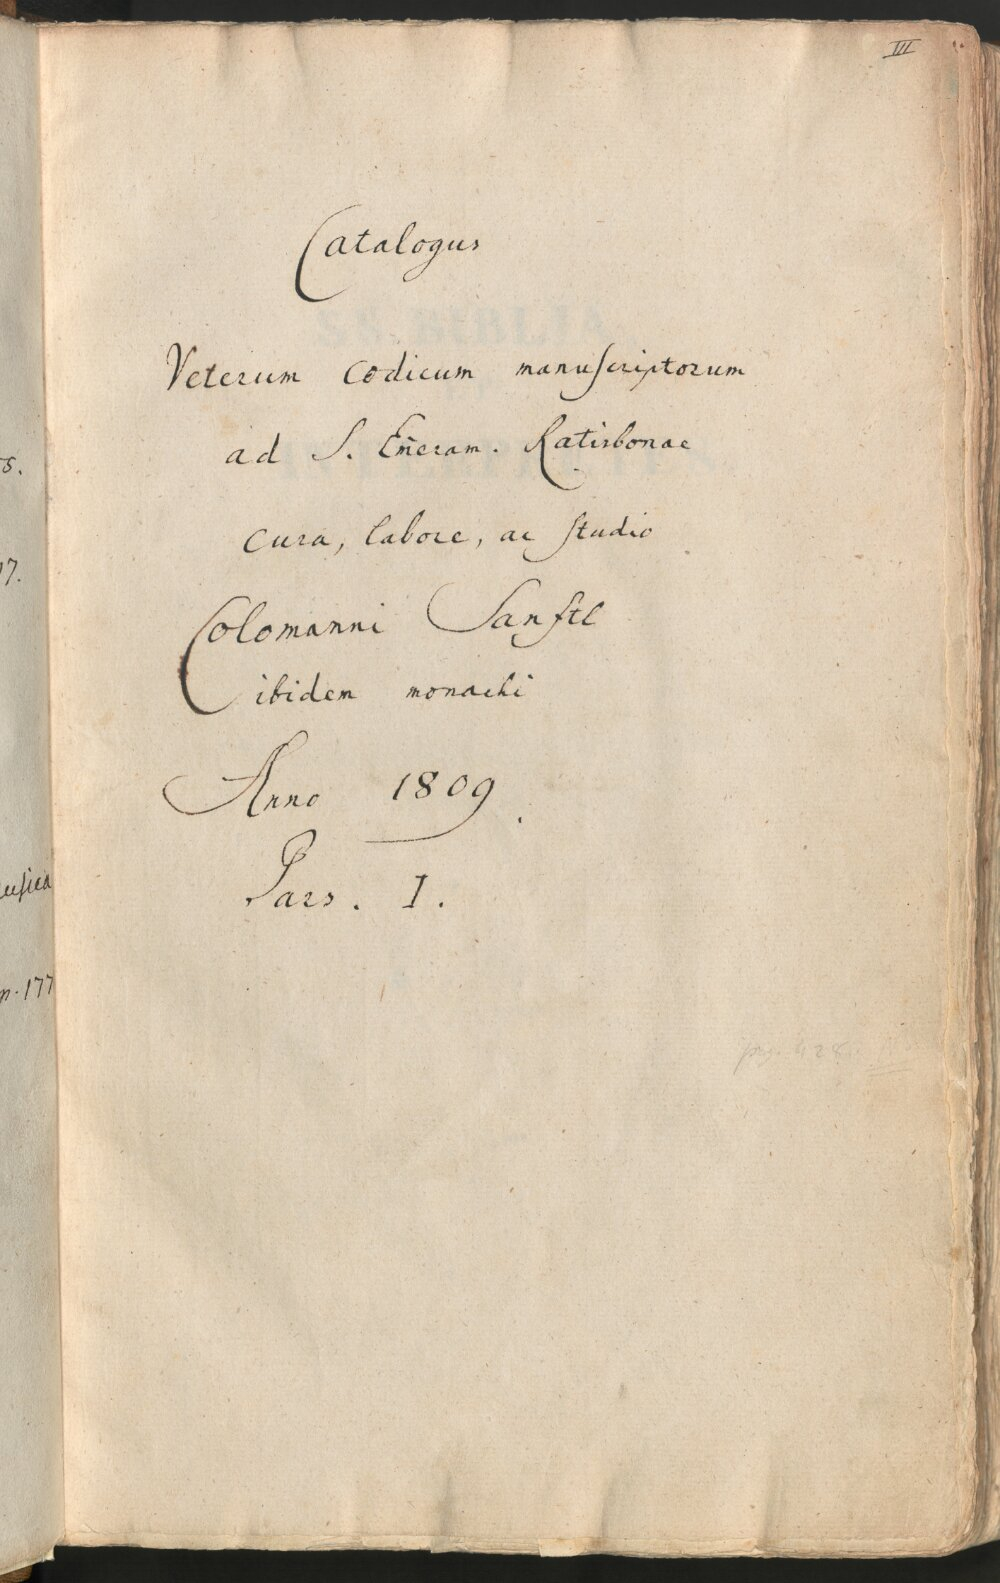 III
Catalogus
Veterum codicum manuſcriptorum
ad S. Em̄eram. Ratisbonae
cura, labore, ac ſtudio
Colomanni Sanftl
ibidem monachi
Anno 1809.
Pars. I.
p. 177